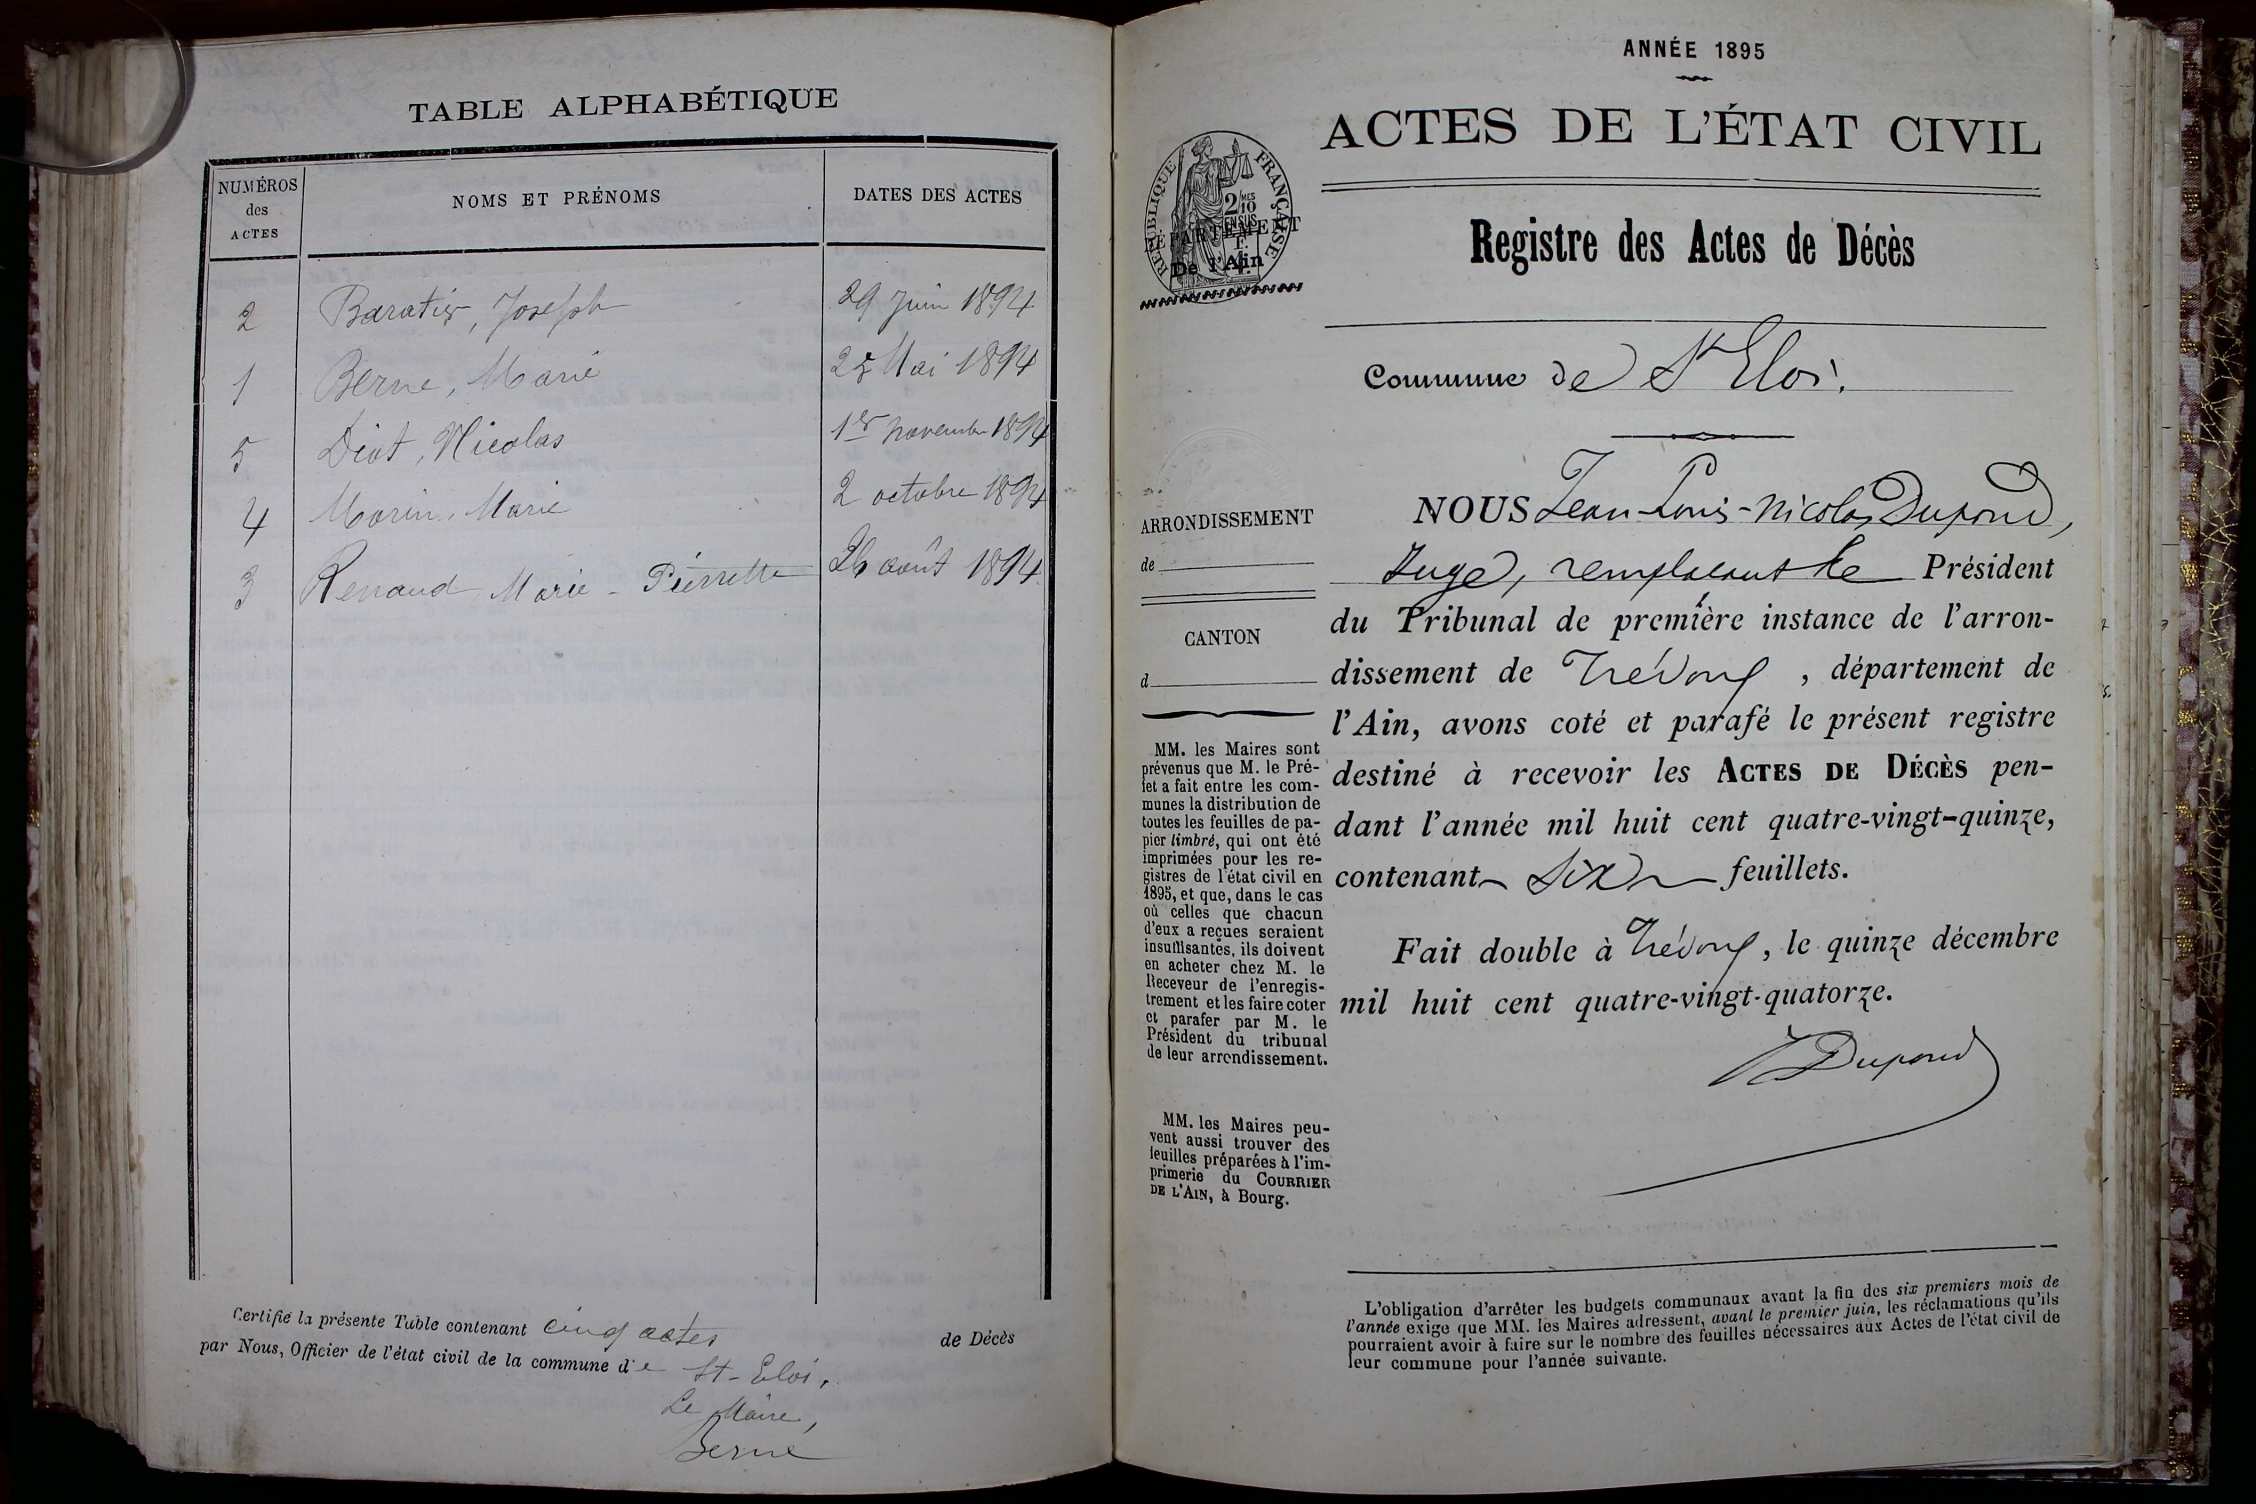 TABLE ALPHABÉTIQUE
NUMÉROS
des
ACTES
NOMS ET PRÉNOMS
DATES DES ACTES
2 Baratier, Joseph 29 Juin 1894
1 Berne, Marie Mai 1894
5 Diot, Nicolas 1er novembre 1894
4 Morin, Marie 2 octobre 1894
3 Renaud Marie - Pierrette 26 août 1894
Certifié la présente Table contenant cinq actes de Décès
par Nous, Officier de l'état civil de la commune de St-Eloi,
Le Maire,
Berne
ANNÉE 1895
ACTES DE L'ÉTAT CIVIL
RÉPUBLIQUE FRANÇAISE
2 MES 10
EN SUS
DÉPARTEMENT
De l'Ain
Registre des Actes de Décès
Commune de St Eloi.
NOUS Jean-Louis-Nicolas Dupond,
Juge, remplaçant le Président
du Tribunal de première instance de l'arron-
dissement de Trévoux, département de
l'Ain, avons coté et parafé le présent registre
destiné à recevoir les ACTES DE DÉCÈS pen-
dant l'année mil huit cent quatre-vingt-quinze,
contenant six feuillets.
Fait double à Trévoux, le quinze décembre
mil huit cent quatre-vingt-quatorze.
Dupond
ARRONDISSEMENT
de
CANTON
d
MM. les Maires sont
prévenus que M. le Pré-
fet a fait entre les com-
munes la distribution de
toutes les feuilles de pa-
pier timbré, qui ont été
imprimées pour les re-
gistres de l'état civil en
1895, et que, dans le cas
où celles que chacun
d'eux a reçues seraient
insuffisantes, ils doivent
en acheter chez M. le
Receveur de l'enregis-
trement et les faire coter
et parafer par M. le
Président du tribunal
de leur arrondissement.
MM. les Maires peu-
vent aussi trouver des
feuilles préparées à l'im-
primerie du COURRIER
DE L'AIN, à Bourg.
L'obligation d'arrêter les budgets communaux avant la fin des six premiers mois de
l'année exige que MM. les Maires adressent, avant le premier juin, les réclamations qu'ils
pourraient avoir à faire sur le nombre des feuilles nécessaires aux Actes de l'état civil de
leur commune pour l'année suivante.